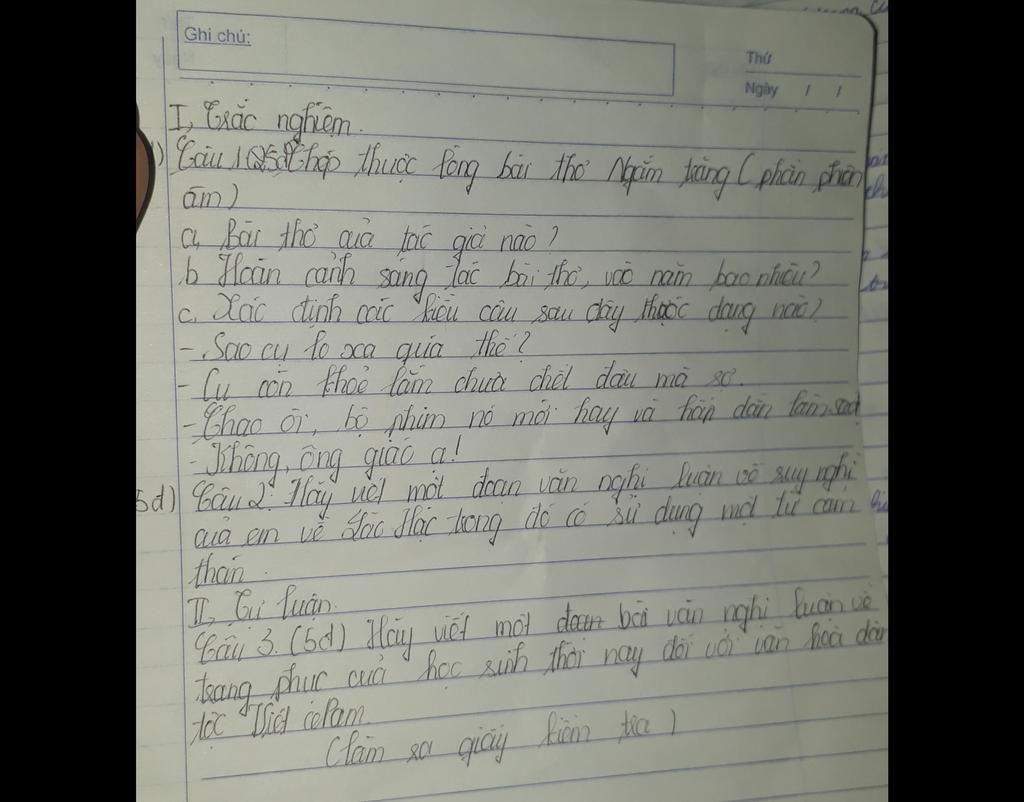 Ghi chú:
Thứ
Ngày / /
I, Trắc nghiệm.
Câu 1 Chép thuộc lòng bài thơ Ngắm trăng (phần phiên
âm)
a, Bài thơ của tác giả nào?
b Hoàn cảnh sáng tác bài thơ, vào năm bao nhiêu?
c, Xác định các kiểu câu sau đây thuộc dạng nào?
- Sao cụ lo xa quá thế?
- Cụ còn khoẻ lắm chưa chết đâu mà sợ.
- Chao ôi, bộ phim nó mới hay và hấp dẫn làm sao
- Không, ông giáo ạ!
5đ) Câu 2: Hãy viết một đoạn văn nghị luận về suy nghĩ
của em về Lão Hạc trong đó có sử dụng một từ cảm
thán.
II, Tự luận.
Câu 3. (5đ) Hãy viết một đoạn bài văn nghị luận về
trang phục của học sinh thời nay đối với văn hoá dân
tộc Việt Nam.
(làm ra giấy kiểm tra)